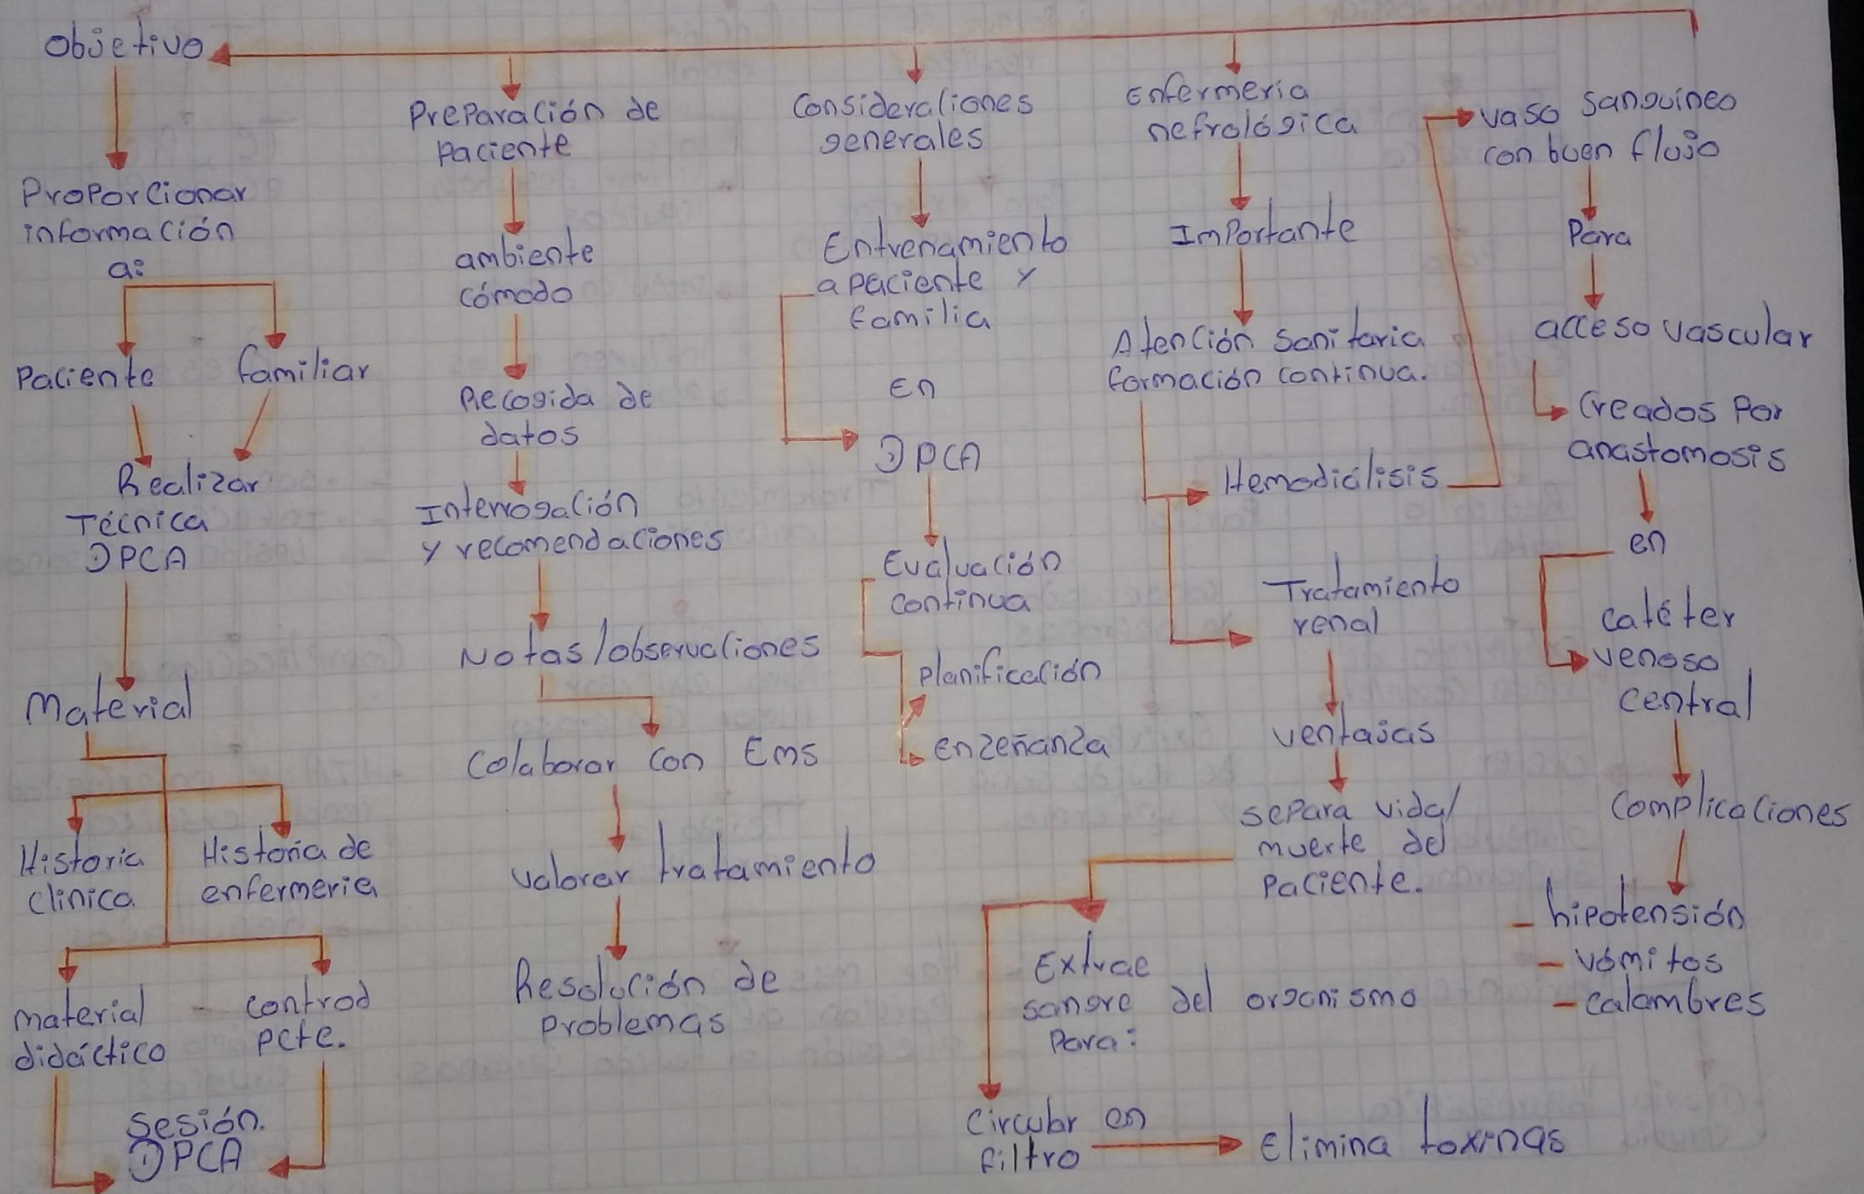 Objetivo
Proporcionar
información
a:
Paciente
familiar
Realizar
Técnica
DPCA
Material
Historia
clinica
Historia de
enfermeria
material
didáctico
- control
pcte.
Sesión.
DPCA
Preparación de
paciente
ambiente
cómodo
Recogida de
datos
Interrogación
y recomendaciones
Notas/observaciones
Colaborar con Ems
valorar tratamiento
Resolución de
problemas
Consideraciones
generales
Entrenamiento
a paciente y
familia
En
DPCA
Evaluación
continua
planificación
enzeñanza
Enfermeria
nefrológica
Importante
Atención Sanitaria
formación continua.
Hemodiálisis
Tratamiento
renal
ventajas
separa vida/
muerte del
Paciente.
Extrae
sangre del organismo
Para:
Circular en
filtro
Elimina toxinas
vaso sanguineo
con buen flujo
Para
acceso vascular
Creados Por
anastomosis
en
catéter
venoso
central
Complicaciones
- hipotensión
- vómitos
- calambres